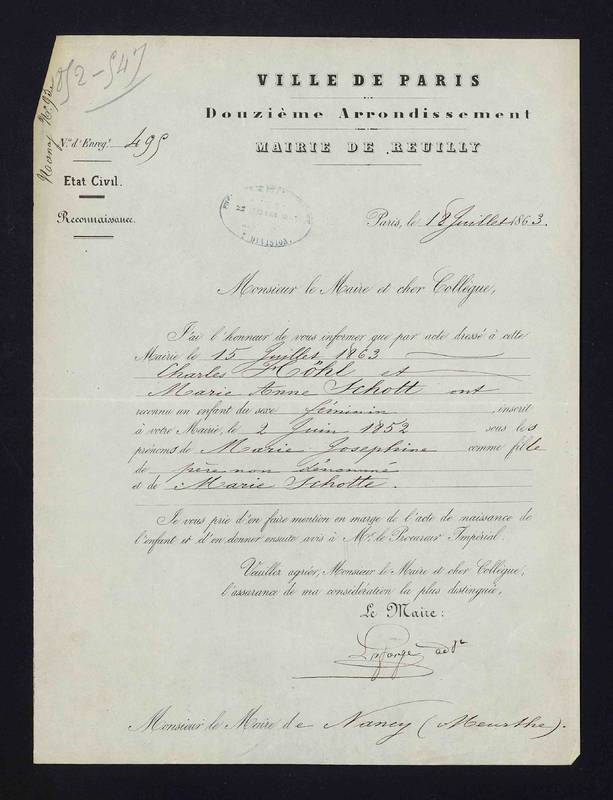 852-547
Nancy
VILLE DE PARIS
Douzième Arrondissement
MAIRIE DE REUILLY
N.º d'Enreg.t 495
Etat Civil.
Reconnaissance.
DIVISION.
Paris, le 18 Juillet 1863.
Monsieur le Maire et cher Collègue,
J'ai l'honneur de vous informer que par acte dressé à cette
Mairie le 15 Juillet 1863
Charles Höhl et
Marie Anne Schott ont
reconnu un enfant du sexe féminin, inscrit
à votre Mairie, le 2 Juin 1852 sous les
prénoms de Marie Josephine comme fille
de père non dénommé
et de Marie Schotte.
Je vous prie d'en faire mention en marge de l'acte de naissance de
l'enfant et d'en donner ensuite avis à Mr. le Procureur Impérial.
Veuillez agréer, Monsieur le Maire et cher Collègue,
l'assurance de ma considération la plus distinguée,
Le Maire:
adjt
Monsieur le Maire de Nancy (Meurthe).